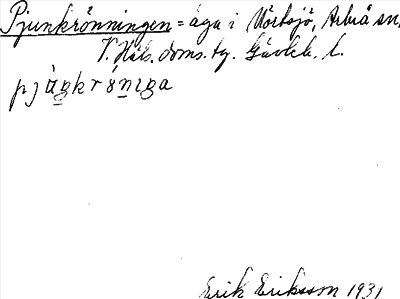 Pjunkrönningen = äga i Vörtsjö, Arbrå sn.
V. Häls. doms. tg. Gävleb. l.
Erik Eriksson 1931